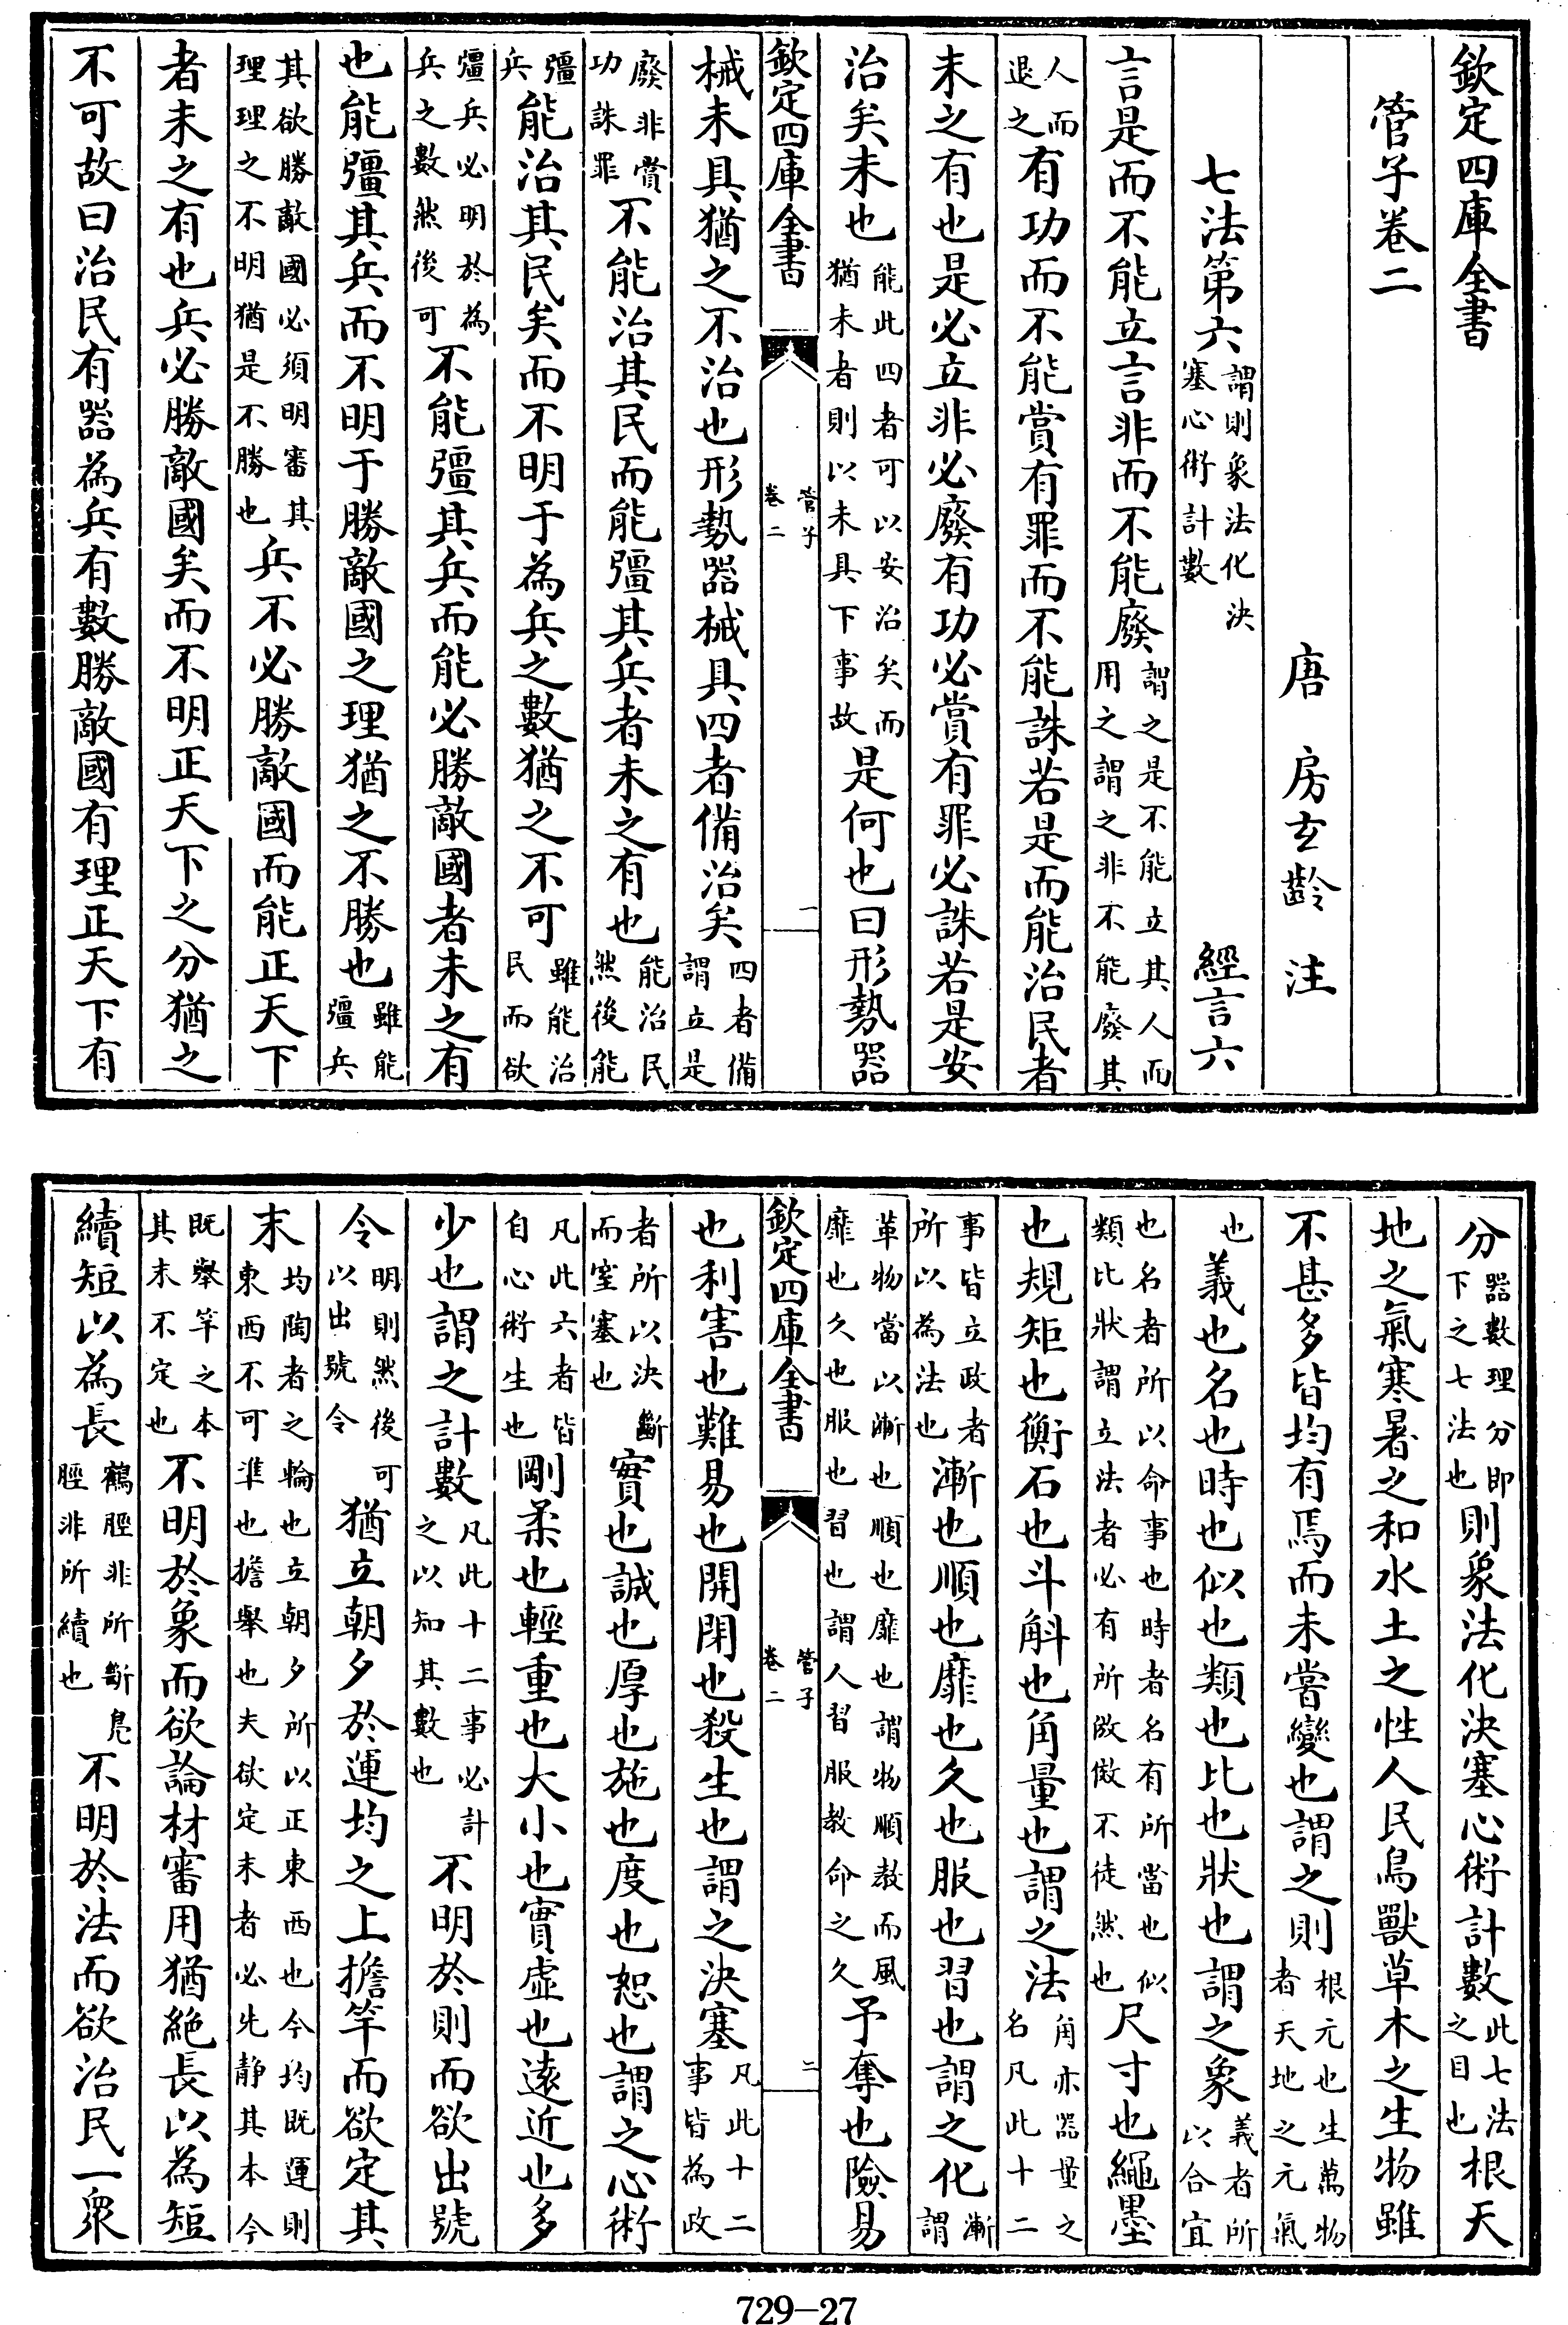 欽定四庫全書
管子卷二
唐　房玄齡　注
七法第六謂則象法化決塞心術計數　經言六
言是而不能立言非而不能廢謂之是不能立其人而用之謂之非不能廢其
人而退之有功而不能賞有罪而不能誅若是而能治民者
未之有也是必立非必廢有功必賞有罪必誅若是安
治矣未也能此四者可以安治矣而猶未者則以未具下事故是何也曰形勢器
欽定四庫全書　管子卷二　一
械未具猶之不治也形勢器械具四者備治矣四者備謂立是
廢非賞功誅罪不能治其民而能彊其兵者未之有也能治民然後能
彊兵能治其民矣而不明于為兵之數猶之不可雖能治民而欲
彊兵必明於為兵之數然後可不能彊其兵而能必勝敵國者未之有
也能彊其兵而不明于勝敵國之理猶之不勝也雖能彊兵
其欲勝敵國必須明審其理理之不明猶是不勝也兵不必勝敵國而能正天下
者未之有也兵必勝敵國矣而不明正天下之分猶之
不可故曰治民有器為兵有數勝敵國有理正天下有
分器數理分即下之七法也則象法化決塞心術計數此七法之目也根天
地之氣寒暑之和水土之性人民鳥獸草木之生物雖
不甚多皆均有焉而未嘗變也謂之則根元也生萬物者天地之元氣
也義也名也時也似也類也比也狀也謂之象義者所以合宜
也名者所以命事也時者名有所當也似類比狀謂立法者必有所倣傚不徒然也尺寸也繩墨
也規矩也衡石也斗斛也角量也謂之法角亦器量之名凡此十二
事皆立政者所以為法也漸也順也靡也久也服也習也謂之化漸謂
革物當以漸也順也靡也謂物順教而風靡也久也服也習也謂人習服教命之久予奪也險易
欽定四庫全書　管子卷二　二
也利害也難易也開閉也殺生也謂之決塞凡此十二事皆為政
者所以決斷而窒塞也實也誠也厚也施也度也恕也謂之心術
凡此六者皆自心術生也剛柔也輕重也大小也實虛也遠近也多
少也謂之計數凡此十二事必計之以知其數也不明於則而欲出號
令明則然後可以出號令猶立朝夕於運均之上擔竿而欲定其
末均陶者之輪也立朝夕所以正東西也今均既運則東西不可準也擔舉也夫欲定末者必先靜其本今
既舉竿之本其末不定也不明於象而欲論材審用猶絕長以為短
續短以為長鶴脛非所斷鳧脛非所續也不明於法而欲治民一眾
729-27